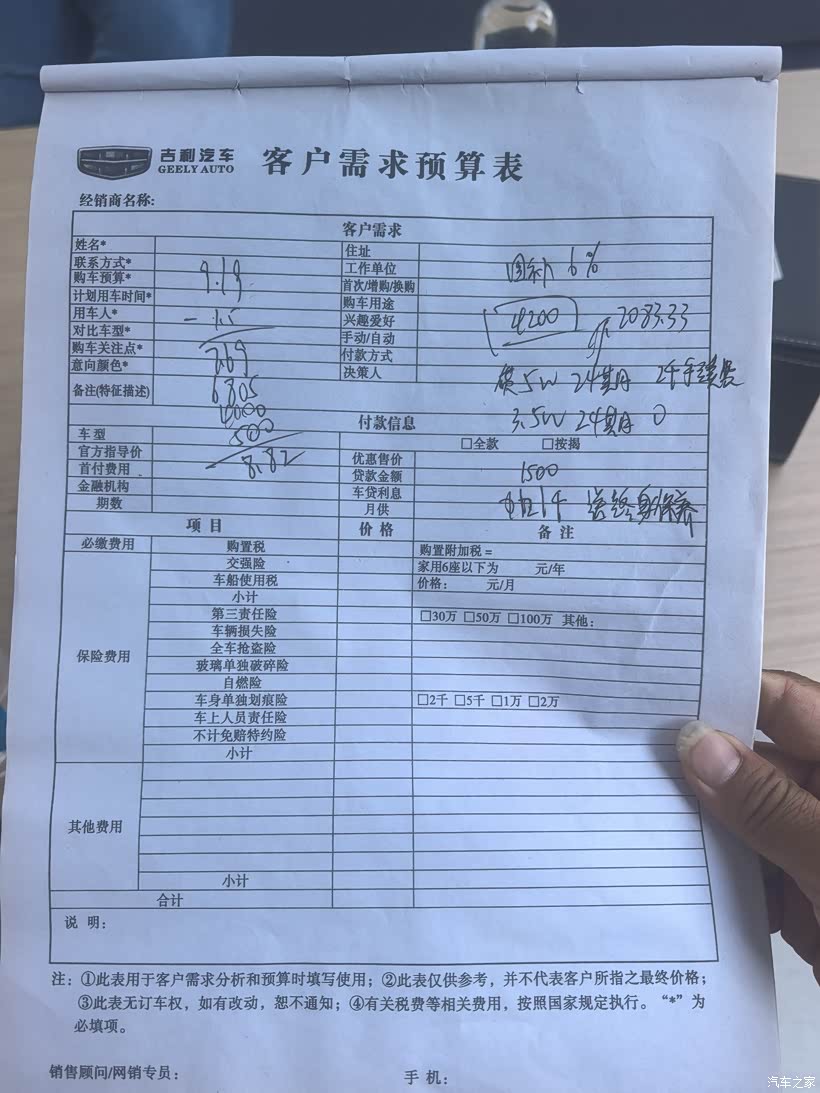 吉利汽车
GEELY AUTO
客户需求预算表
经销商名称:
客户需求
姓名*
住址
联系方式*
工作单位
国补 6%
购车预算*
9.19
首次/增购/换购
计划用车时间*
购车用途
用车人*
- 1.5
兴趣爱好
4200
2083.33
对比车型*
手动/自动
购车关注点*
7.69
付款方式
意向颜色*
决策人
5W 24期 2千手续费
备注(特征描述)
6.805
4000
3.5W 24期 0
付款信息
车型
500
□全款 □按揭
官方指导价
8.82
优惠售价
首付费用
贷款金额
1500
金融机构
车贷利息
送终身保养
期数
月供
项目 价格 备注
必缴费用
购置税
购置附加税=
交强险
家用6座以下为 元/年
车船使用税
价格: 元/月
小计
保险费用
第三责任险
□30万 □50万 □100万 其他:
车辆损失险
全车抢盗险
玻璃单独破碎险
自燃险
车身单独划痕险
□2千 □5千 □1万 □2万
车上人员责任险
不计免赔特约险
小计
其他费用
小计
合计
说 明:
注:①此表用于客户需求分析和预算时填写使用;②此表仅供参考,并不代表客户所指之最终价格;
③此表无订车权,如有改动,恕不通知;④有关税费等相关费用,按照国家规定执行。“*”为
必填项。
销售顾问/网销专员: 手 机:
汽车之家